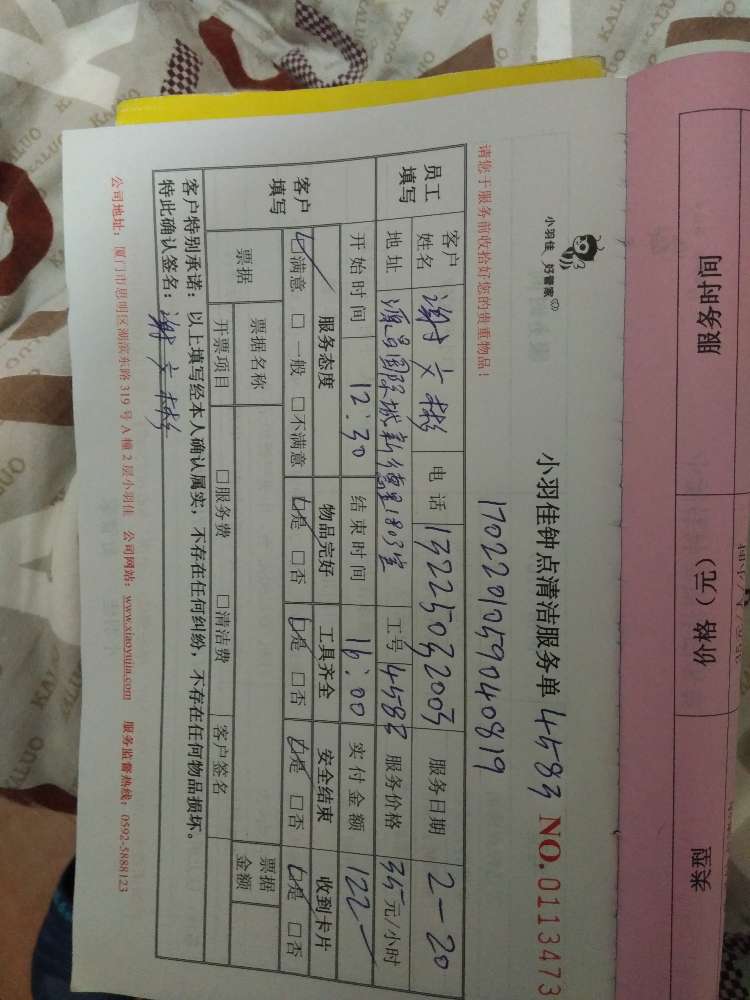 服务时间 价格（元） 类型
小羽佳 好管家
小羽佳钟点清洁服务单 4583 NO.0113473
1702201259040819
请您于服务前收拾好您的贵重物品！
员工填写 客户姓名 谢文彬 电话 13225032003 服务日期 2-20
地址 源昌国际城新德里1803室 工号 4583 服务价格 35元/小时
开始时间 12:30 结束时间 16:00 实付金额 122
客户填写 服务态度 物品完好 工具齐全 安全结束 收到卡片
☑满意 □一般 □不满意 ☑是 □否 ☑是 □否 ☑是 □否 ☑是 □否
票据 票据名称 票据金额
开票项目 □服务费 □清洁费 客户签名
客户特别承诺：以上填写经本人确认属实，不存在任何纠纷，不存在任何物品损坏。
特此确认签名：谢文彬
公司地址：厦门市思明区湖滨东路319号A幢2层小羽佳 公司网站：www.xiaoyujia.com 服务监督热线：0592-5888123
KALUO